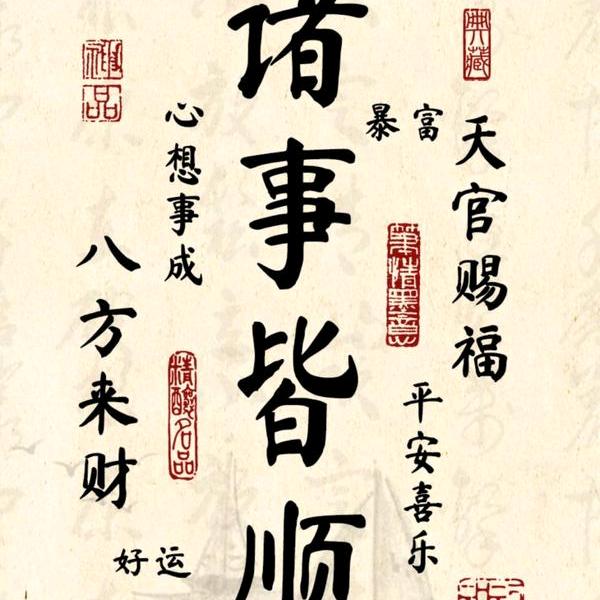 典藏
天官赐福
富暴
平安喜乐
笔情墨意
诸事皆顺
心想事成
精酿名品
好运
八方来财